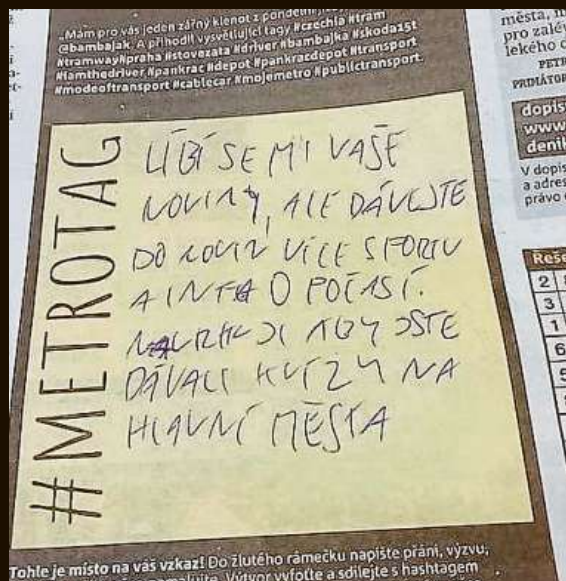 „Mám pro vás jeden zářný klenot z pondělní
@bambajak. A přihodil vysvětlující tagy #czechia #tram
#tramway #praha #stovezata #driver #bambajka #skoda15t
#iamthedriver #pankrac #depot #pankracdepot #transport
#modeoftransport #cablecar #mojemetro #publictransport.
#METROTAG
LÍBÍ SE MI VAŠE
NOVINY, ALE DÁVEJTE
DO NOVIN VÍCE SPORTU
A INFA O POČASÍ.
NAVRHUJI ABY JSTE
DÁVALI KVÍZY NA
HLAVNÍ MĚSTA
Tohle je místo na váš vzkaz! Do žlutého rámečku napište přání, výzvu,
Výtvor vyfoťte a sdílejte s hashtagem
města,
pro zalé
lekého
PETR
PRIMÁTOR
dopis
www
denik
V dopis
a adres
právo
Reše
2
3
1
6
5